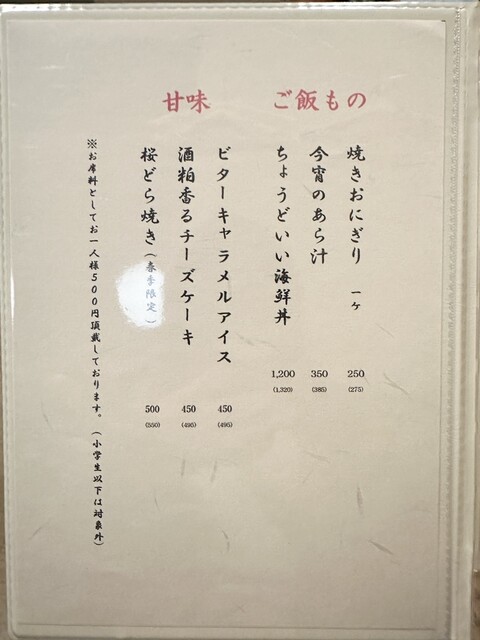 ご飯もの
焼きおにぎり 一ケ 250 (275)
今宵のあら汁 350 (385)
ちょうどいい海鮮丼 1,200 (1,320)
甘味
ビターキャラメルアイス 450 (495)
酒粕香るチーズケーキ 450 (495)
桜どら焼き(春季限定) 500 (550)
※お席料としてお一人様500円頂戴しております。(小学生以下は対象外)